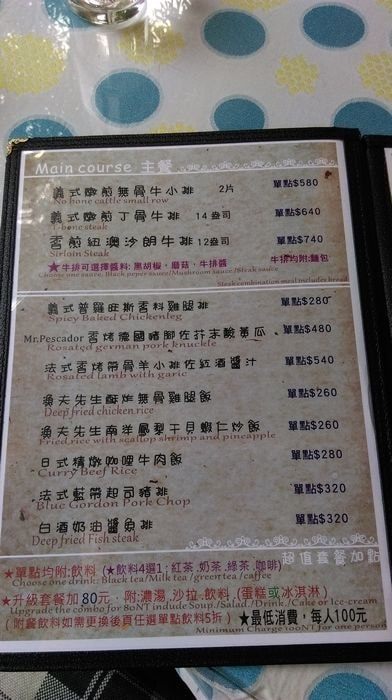 Main course 主餐
義式嫩煎無骨牛小排 2片 單點$580
No bone cattle small row
義式嫩煎丁骨牛排 14盎司 單點$640
T-bone steak
香煎紐澳沙朗牛排 12盎司 單點$740
Sirloin Steak
★牛排可選擇醬料: 黑胡椒, 磨菇, 牛排醬 牛排均附:麵包
Choose one sauce, Black pepper sauce/Mushroom sauce /Steak sauce
Steak combination meal includes bread
義式普羅旺斯香料雞腿排 單點$280
Spicy Baked Chickenleg
Mr.Pescador 香烤德國豬腳佐芥末酸黃瓜 單點$480
Rosated german pork knuckle
法式香烤帶骨羊小排佐紅酒醬汁 單點$540
Rosated lamb with garlic
漁夫先生酥炸無骨雞腿飯 單點$260
Deep fried chicken rice
漁夫先生南洋鳳梨干貝蝦仁炒飯 單點$260
Fried rice with scallop shrimp and pineapple
日式精燉咖哩牛肉飯 單點$280
Curry Beef Rice
法式藍帶起司豬排 單點$320
Blue Gordon Pork Chop
白酒奶油醬魚排 單點$320
Deep fried Fish steak
超值套餐加點
★單點均附:飲料 (★飲料4選1: 紅茶.奶茶.綠茶.咖啡)
Choose one drink: Black tea/Milk tea /green tea /caffee
★升級套餐加 80元. 附:濃湯.沙拉.飲料.(蛋糕或冰淇淋)
Upgrade the combo for 80NT indude Soup /Salad /Drink /Cake or Ice-cream
(附餐飲料如需更換後頁任選單點飲料5折) ★最低消費, 每人100元
Minimum Charge 100NT for one person